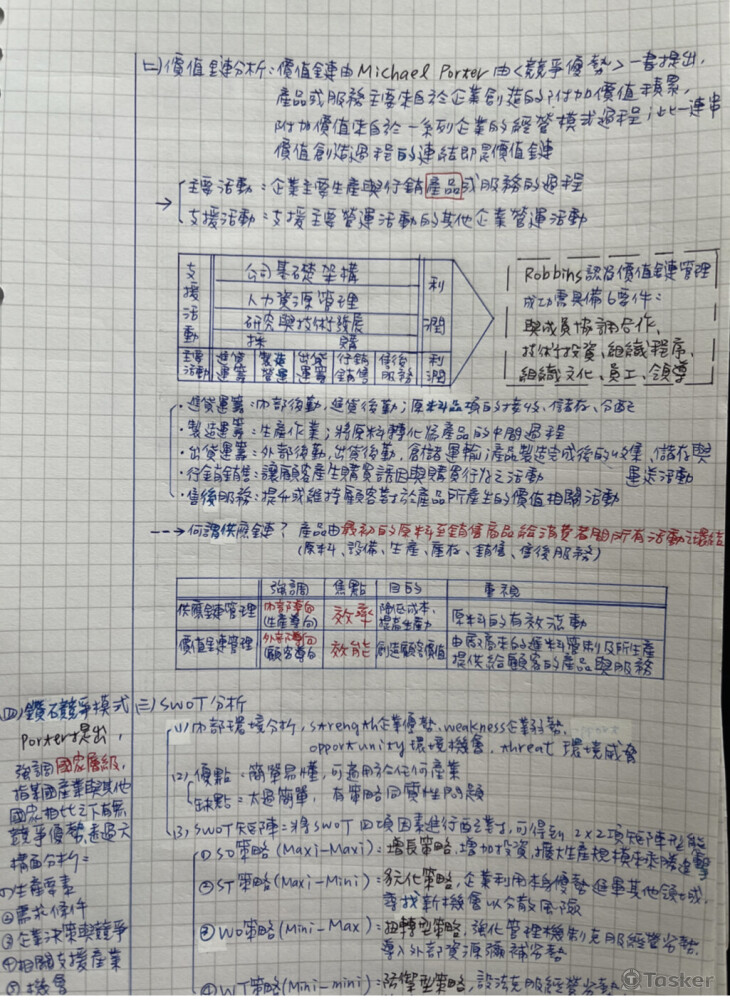 (二)價值鏈分析:價值鏈由Michael Porter由<競爭優勢>一書提出,
產品或服務主要來自於企業創造的附加價值積累,
附加價值來自於一系列企業的經營模式過程;此一連串
價值創造過程的連結即是價值鏈
→ 主要活動:企業主要生產與行銷產品或服務的過程
支援活動:支援主要營運活動的其他企業營運活動
支援活動
公司基礎架構
人力資源管理
研究與技術發展
採購
利潤
主要活動 進貨運籌 製造營運 出貨運籌 行銷銷售 售後服務 利潤
Robbins認為價值鏈管理
成功需具備6要件:
與成員協調合作、
技術投資、組織程序、
組織文化、員工、領導
・進貨運籌:內部後勤,進貨後勤;原料品項的接收、儲存、分配
・製造運籌:生產作業;將原料轉化為產品的中間過程
・出貨運籌:外部後勤,出貨後勤,倉儲運輸;產品製造完成後的收集、儲存與
運送活動
・行銷銷售:讓顧客產生購買誘因與購買行為之活動
・售後服務:提升或維持顧客對於產品所產生的價值相關活動
---→何謂供應鏈?產品由最初的原料至銷售商品給消費者間所有活動之環結
(原料、設備、生產、庫存、銷售、售後服務)
強調 焦點 目的 重視
供應鏈管理 內部導向(生產導向) 效率 降低成本,提高生產力 原料的有效流動
價值鏈管理 外部導向 顧客導向 效能 創造顧客價值 由廠商來的進料管制及所生產
提供給顧客的產品與服務
(三)SWOT分析
(1)內部環境分析,strength企業優勢,weakness企業弱勢,
opportunity環境機會,threat環境威脅
(2)優點:簡單易懂,可適用於任何產業
缺點:太過簡單,有策略同質性問題
(3)SWOT矩陣:將SWOT四項因素進行配對,可得到2×2項矩陣型態
①SO策略(Maxi-Maxi):增長策略,增加投資,擴大生產規模乘勝追擊
②ST策略(Maxi-Mini):多元化策略,企業利用本身優勢進軍其他領域,
尋找新機會以分散風險
③WO策略(Mini-Max):扭轉型策略,強化管理機制克服經營劣勢,
導入外部資源彌補劣勢
④WT策略(Mini-mini):防禦型策略,設法克服經營劣勢
(四)鑽石競爭模式
Porter提出,
強調國家層級,
指某國產業與其他
國家相比之下有無
競爭優勢,透過六
構面分析:
①生產要素
②需求條件
③企業決策與競爭
④相關支援產業
⑤機會
Tasker